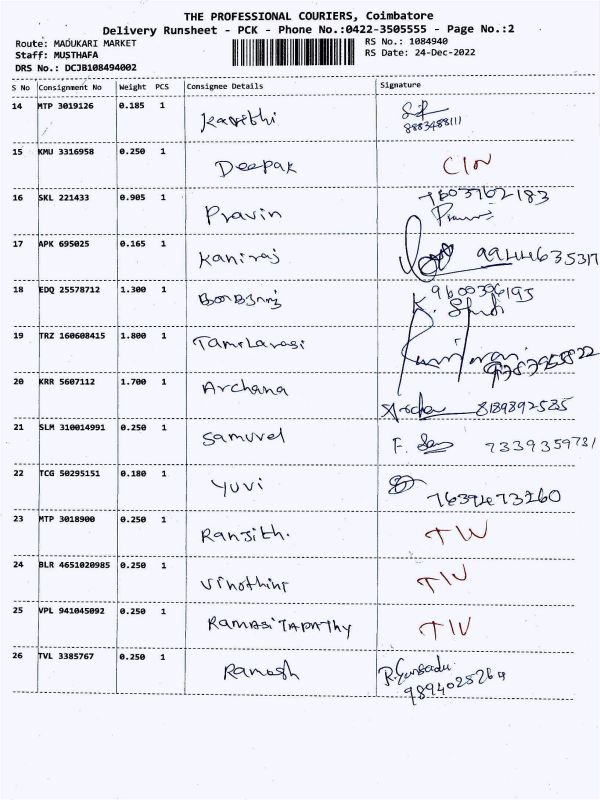 THE PROFESSIONAL COURIERS, Coimbatore
Delivery Runsheet - PCK - Phone No.:0422-3505555 - Page No.:2
Route: MADUKARI MARKET
RS No.: 1084940
Staff: MUSTHAFA
RS Date: 24-Dec-2022
DRS No.: DCJB108494002
S No Consignment No Weight PCS Consignee Details Signature
14 MTP 3019126 0.185 1
8883488111
15 KMU 3316958 0.250 1 Deepak
16 SKL 221433 0.905 1 Pravin 7603762183
17 APK 695025 0.165 1 Kaniraj
18 EDQ 25578712 1.300 1 9600396195
19 TRZ 160608415 1.800 1 Tamilarasi
20 KRR 5607112 1.700 1 Archana
21 SLM 310014991 0.250 1 Samuvel F.
22 TCG 50295151 0.180 1 Yuvi
23 MTP 3018900 0.250 1 Ranjith. TIV
24 BLR 4651020985 0.250 1 Vinothini TIV
25 VPL 941045092 0.250 1 TIV
26 TVL 3385767 0.250 1 Ramesh